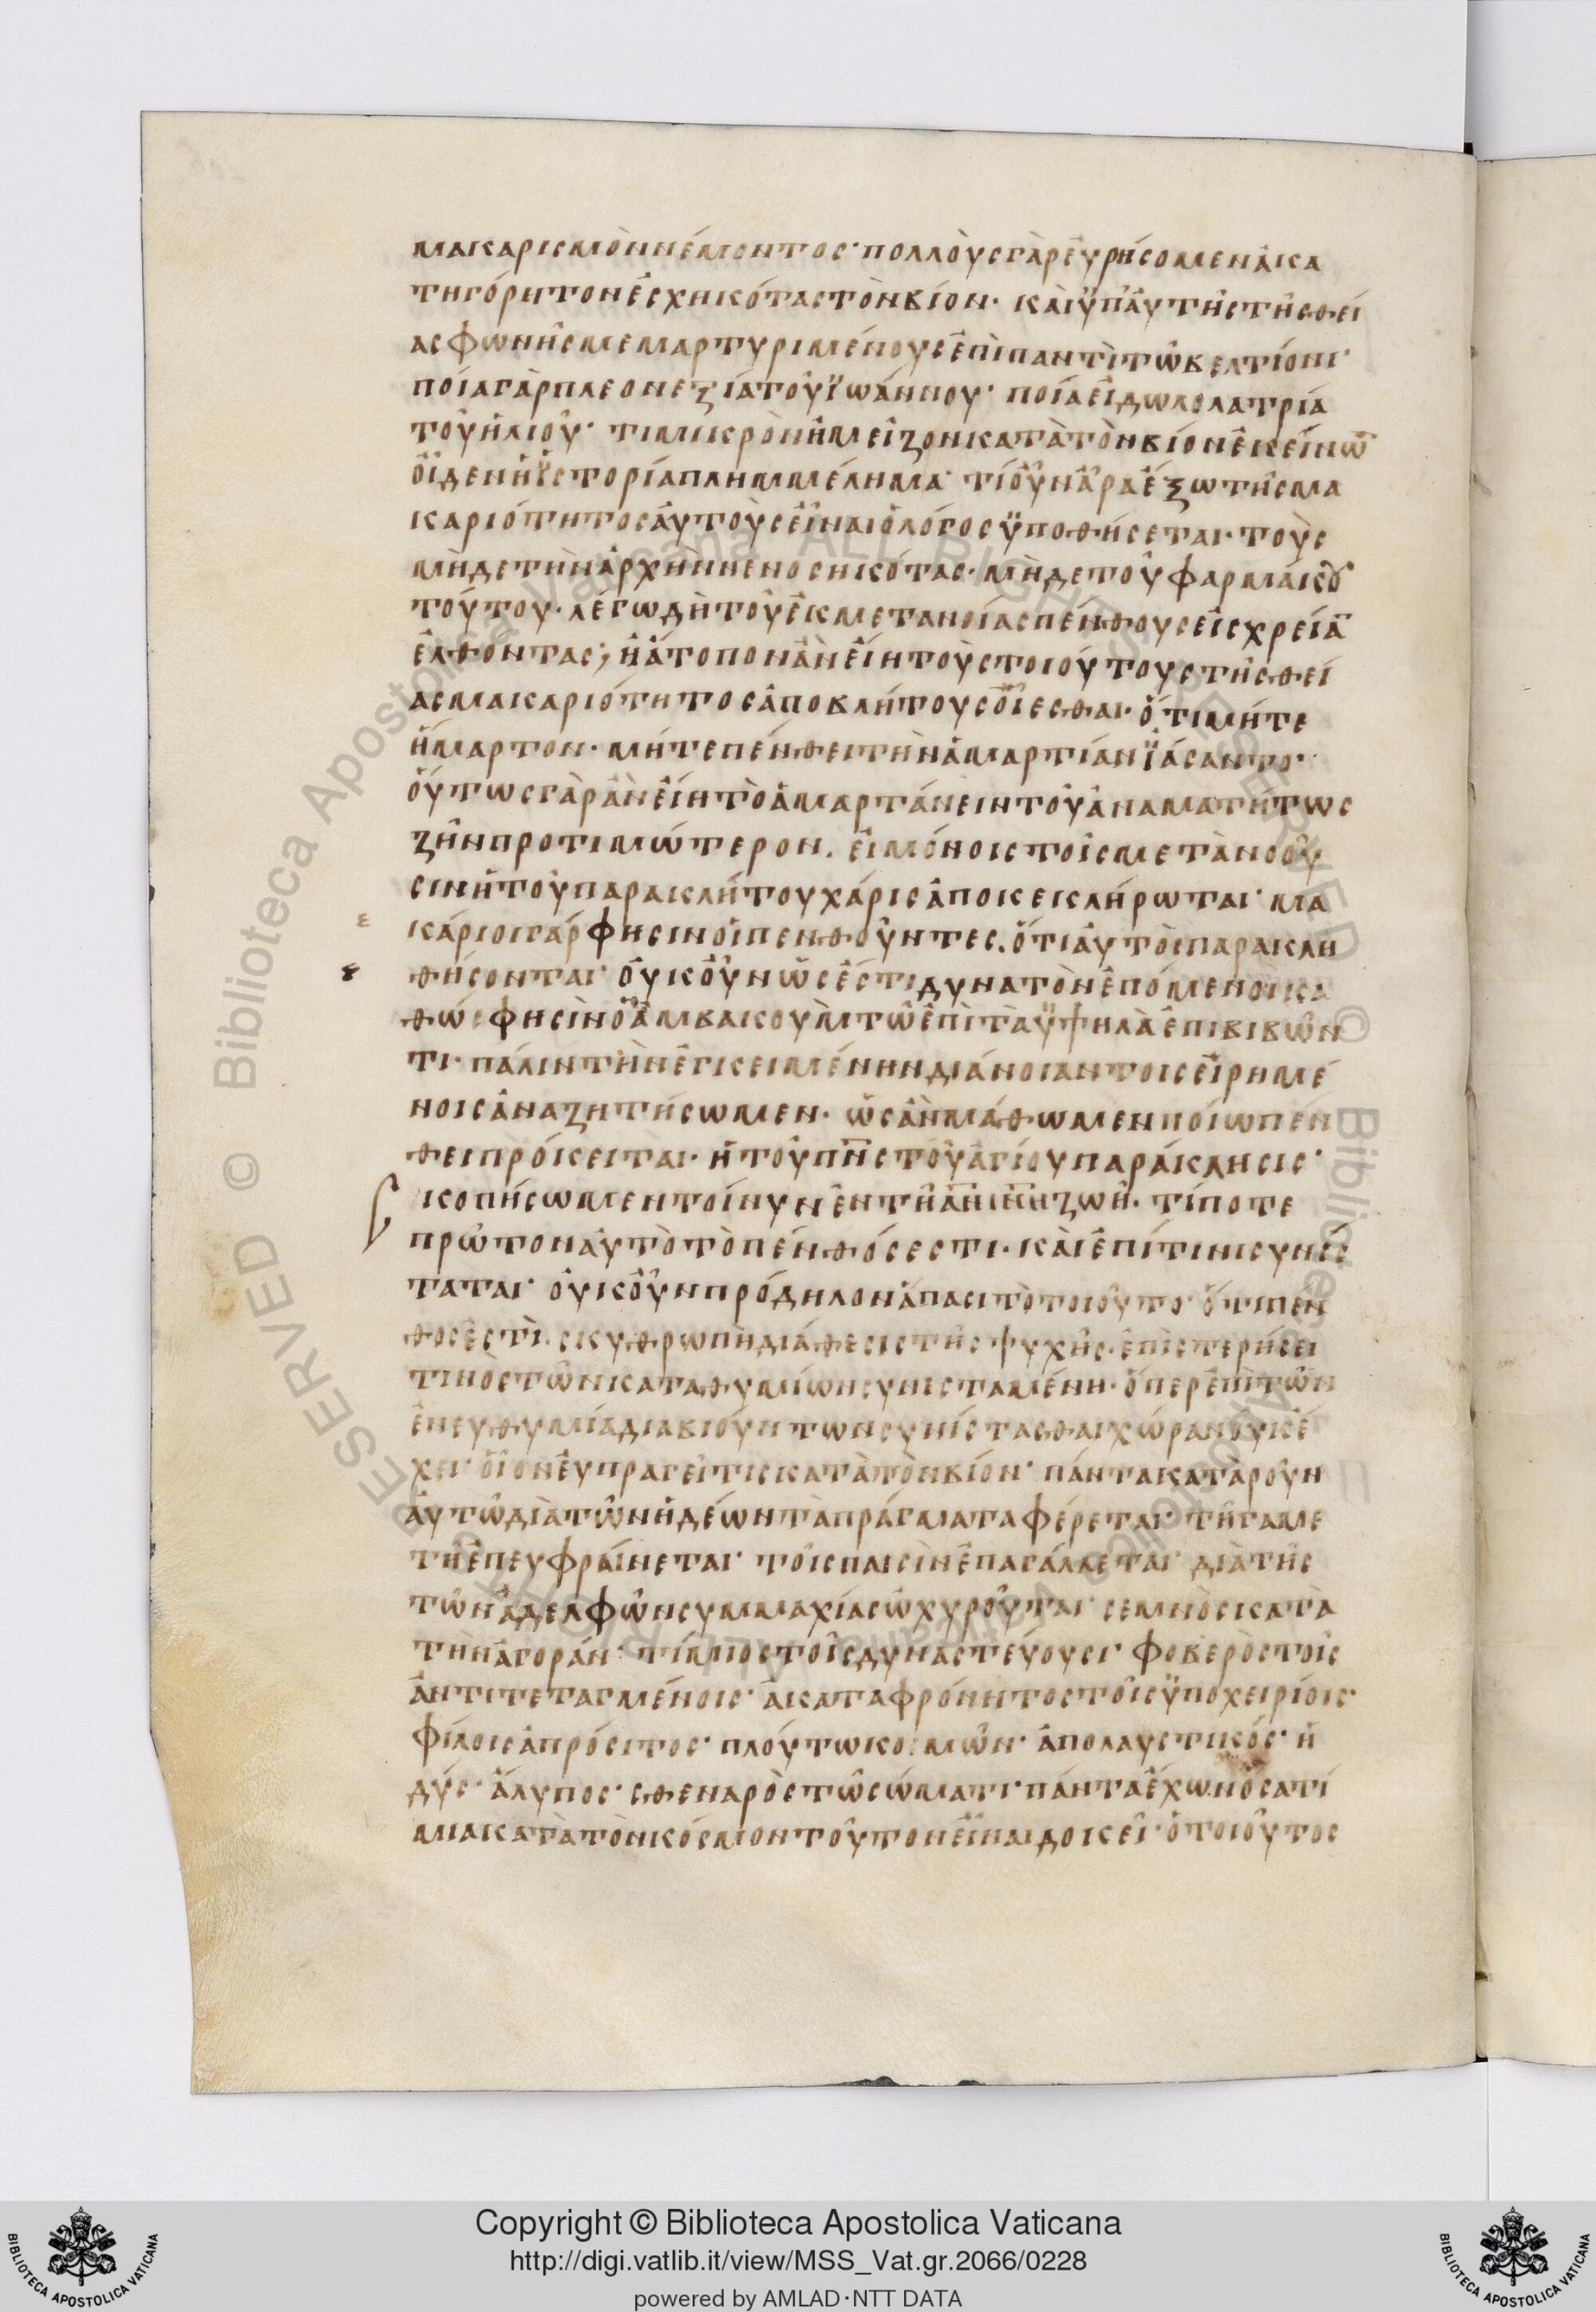 μακαρισμὸννέμοντος· πολλοὺσγὰρεὑρήσομενἀκα
τηγόρητονἐσχηκότασ τὸνβίον· καὶϋπ'αὐτῆστῆσθεί
ασφωνῆσμεμαρτυριμένουσἐπὶπαντὶτῶβελτίονι·
ποίαγὰρπλεονεξίατοῦϊωάννου· ποίαεἰδωλολατρία
τοῦἡλιοῦ· τιμικρὸνἢμεῖζονκατὰτὸνβίονἐκείνω̅
οἶδενἡϊστορίαπλημμέλημα· τίοὖνἆραἔξωτῆσμα
καριότητοσαὐτοὺσεἶναιὁλόγοσϋποθήσεται· τοὺσ
μὴδετὴνἀρχὴννενοσηκότασ· μὴδετοῦφαρμάκȣ
τούτου· λέγωδὴτοῦἐκμετανοίασπένθουσεἰσχρεία̅
ἐλθόντασ; ἢἄτοπονἂνεἴητοὺστοιούτουστῆσθεί
ασμακαριότητοσἀποβλήτουσοἴεσθαι· ὅτιμήτε
ἥμαρτον· μήτεπένθειτὴνἁμαρτίανϊάσαντο·
οὕτωσγὰρἂνεἴητὸἁμαρτάνειντοῦἀναματήτωσ
ζῆνπροτιμώτερον. εἰμόνοιστοῖσμετὰνοοῦ
σινἡτοῦπαρακλήτουχάρισἀποκεκλήρωται· μα
κάριοιγάρφησινοἱπενθοῦντεσ. ὅτιαὐτοὶπαρακλη
θήσονται· οὐκοῦνὡσἐστὶδυνατὸνἐπόμενοικα
θώσφησὶνὁἀμβακουὺμτῶἐπὶτὰϋψηλὰἐπιβιβῶν
τι· πάλιντὴνἐγκειμένηνδιάνοιαντοισεἰρημέ
νοισἀναζητήσωμεν· ὡσἂνμάθωμενποίωπέν
θειπρόκειται· ἡτοῦπν̅στοῦἁγίουπαράκλησισ·
Σκοπήσωμεντοίνυνἐντῆἀν̅ι̅ν̅ηζωῆ· τίποτε
πρῶτοναὐτὸτὸπένθόσεστι· καὶἐπίτινισυνίσ
ταται· οὐκοῦνπρόδηλονἅπασιτὸτοιοῦτο· ὅτιπέν
θοσἐστὶ· σκυθρωπὴδιάθεσιστῆσψυχῆσ· ἐπὶστερήσει
τινὸστῶνκαταθυμίωνσυνισταμένη· ὅπερἐπὶτῶν
ἐνευθυμίαδιαβιούντωνσυνίστασθαιχώρανοὐκἔ
χει· οἷονεὐπραγεῖτισκατὰτὸνβίον· πάντακατὰροῦν
αὐτῶδιὰτῶνἡδέωντὰπράγματαφέρεται· τῆγαμε
τῆἐπευφραίνεται· τοῖσπαισὶνἐπαγάλλεται· διὰτῆσ
τῶνἀδελφῶνσυμμαχίασὠχυροῦται· σεμνὸσκατὰ
τὴνἀγοράν· τίμιοστοῖσδυναστεύουσι· φοβερὸστοῖσ
ἀντιτεταγμένοισ· ἀκαταφρόνητοστοῖσϋποχειρίοισ·
φίλοισἀπρόσιτοσ· πλούτωκομῶν· ἀπολαυστικόσ· ἡ
δύσ· ἄλυποσ· σθεναρὸστῶσώματι· πάνταἔχωνὅσατί
μιακατὰτὸνκόσμοντοῦτονεἶναιδοκεῖ· ὁτοιοῦτοσ
Copyright © Biblioteca Apostolica Vaticana
http://digi.vatlib.it/view/MSS_Vat.gr.2066/0228
powered by AMLAD·NTT DATA